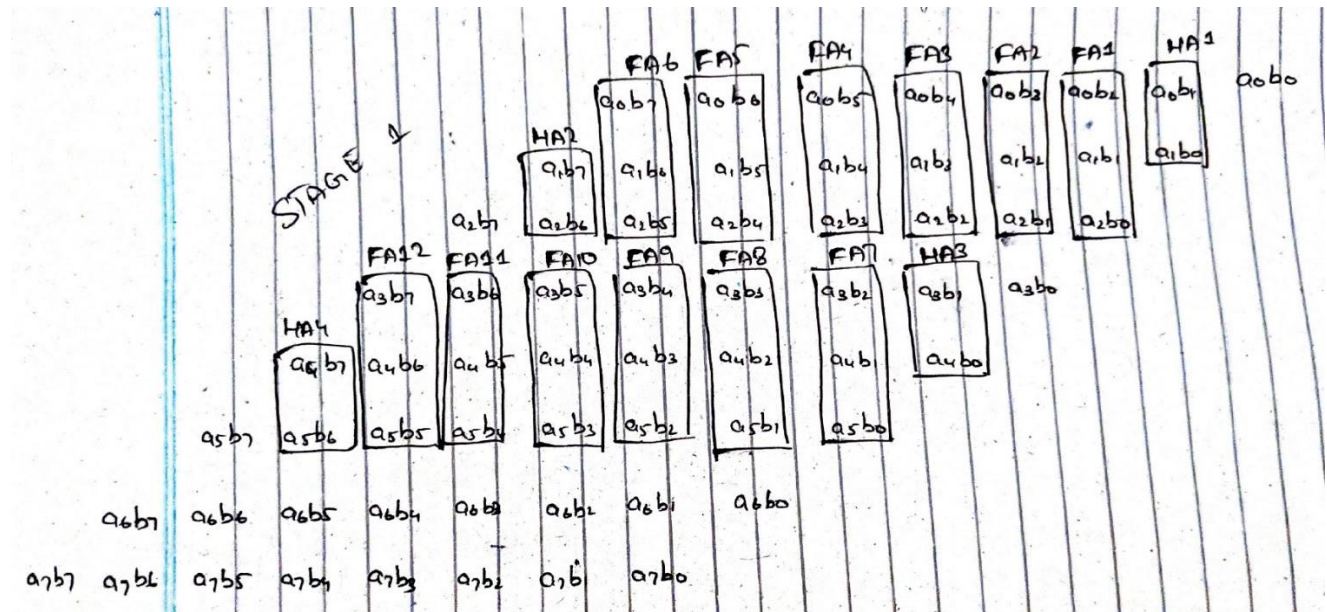 FA6 FA5 FA4 FA3 FA2 FA1 HA1
a0b7 a0b6 a0b5 a0b4 a0b3 a0b2 a0b1 a0b0
STAGE 1
HA2
a1b7 a1b6 a1b5 a1b4 a1b3 a1b2 a1b1 a1b0
a2b7 a2b6 a2b5 a2b4 a2b3 a2b2 a2b1 a2b0
FA12 FA11 FA10 FA9 FA8 FA7 HA3
a3b7 a3b6 a3b5 a3b4 a3b3 a3b2 a3b1 a3b0
HA4
a4b7 a4b6 a4b5 a4b4 a4b3 a4b2 a4b1 a4b0
a5b7 a5b6 a5b5 a5b4 a5b3 a5b2 a5b1 a5b0
a6b7 a6b6 a6b5 a6b4 a6b3 a6b2 a6b1 a6b0
a7b7 a7b6 a7b5 a7b4 a7b3 a7b2 a7b1 a7b0